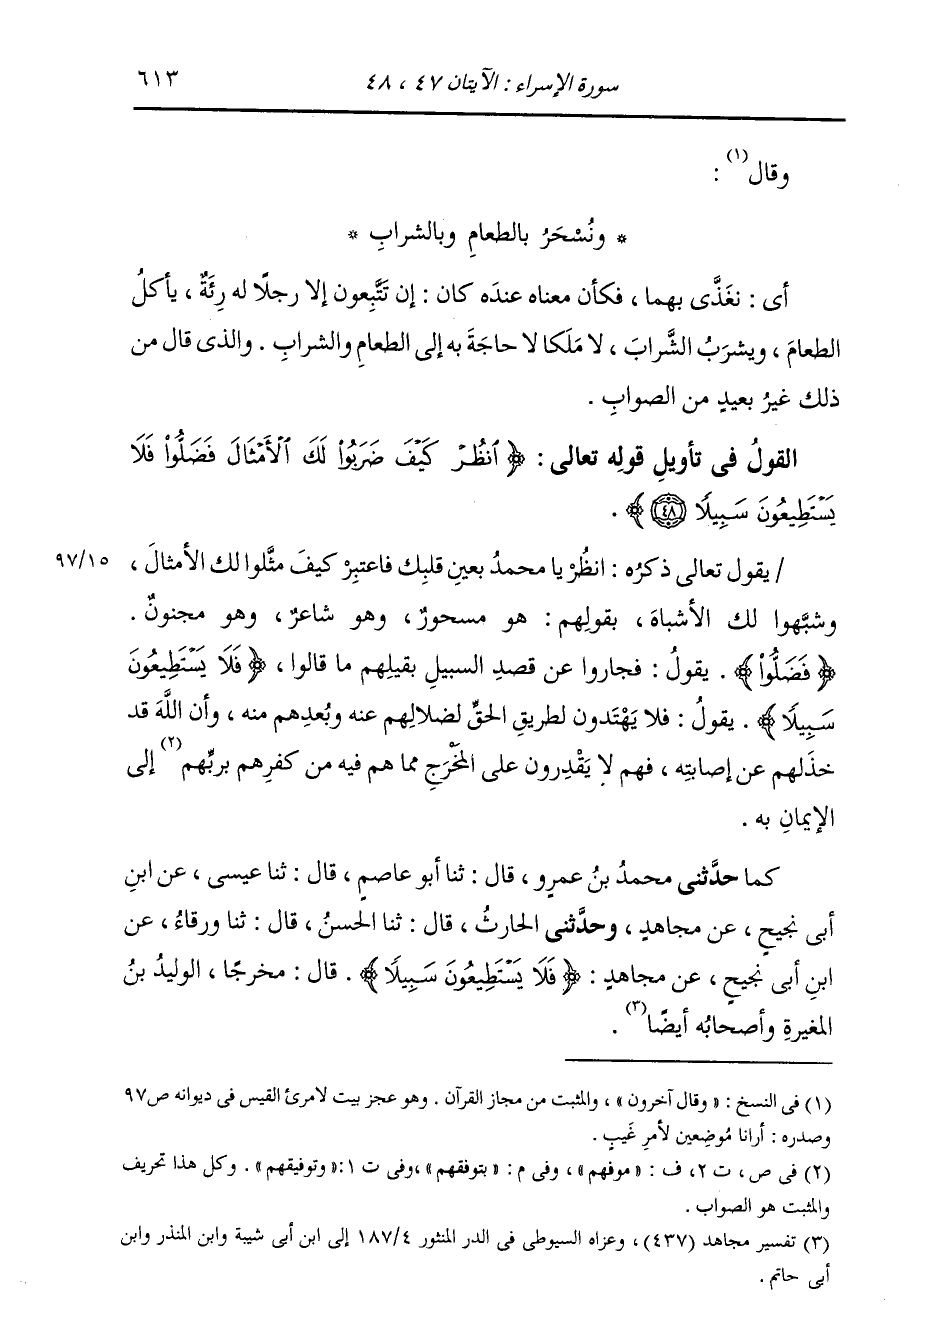 سورة الإسراء : الآيتان ٤٧ ، ٤٨ ٦١٣
وقال(١) :
* ونُسْحَرُ بالطعامِ وبالشرابِ *
أى : نغَذَّى بهما ، فكأن معناه عندَه كان : إن تَتَّبِعون إلا رجلًا له رِئَةٌ ، يأكلُ
الطعامَ ، ويشرَبُ الشَّرابَ ، لا مَلَكا لا حاجَةَ به إلى الطعامِ والشرابِ . والذى قال من
ذلك غيرُ بعيدٍ من الصوابِ .
القولُ فى تأويلِ قولِه تعالى : ﴿ ٱنظُرْ كَيْفَ ضَرَبُوا۟ لَكَ ٱلْأَمْثَالَ فَضَلُّوا۟ فَلَا
يَسْتَطِيعُونَ سَبِيلًا ٤٨ ﴾ .
/ يقول تعالى ذكرُه : انظُرْ يا محمدُ بعينِ قلبِك فاعتبِرْ كيفَ مثَّلوا لك الأمثالَ ، ٩٧/١٥
وشبَّهوا لك الأشباهَ ، بقولِهم : هو مسحورٌ ، وهو شاعرٌ ، وهو مجنونٌ .
﴿ فَضَلُّوا۟ ﴾ . يقولُ : فجاروا عن قصدِ السبيلِ بقيلِهم ما قالوا ، ﴿ فَلَا يَسْتَطِيعُونَ
سَبِيلًا ﴾ . يقولُ : فلا يَهْتَدون لطريقِ الحقِّ لضلالِهم عنه وبُعدِهم منه ، وأن اللَّهَ قد
خذَلهم عن إصابتِه ، فهم لا يَقْدِرون على المَخْرَجِ مما هم فيه من كفرِهم بربِّهم(٢) إلى
الإيمانِ به .
كما حدَّثنى محمدُ بنُ عمرٍو ، قال : ثنا أبو عاصمٍ ، قال : ثنا عيسى ، عن ابنِ
أبى نجيحٍ ، عن مجاهدٍ ، وحدَّثنى الحارثُ ، قال : ثنا الحسنُ ، قال : ثنا ورقاءُ ، عن
ابنِ أبى نجيحٍ ، عن مجاهدٍ : ﴿ فَلَا يَسْتَطِيعُونَ سَبِيلًا ﴾ . قال : مخرجًا ، الوليدُ بنُ
المغيرةِ وأصحابُه أيضًا(٣) .
(١) فى النسخ : « وقال آخرون » ، والمثبت من مجاز القرآن . وهو عجز بيت لامرئ القيس فى ديوانه ص٩٧
وصدره : أرانا مُوضِعين لأمرِ غَيبٍ .
(٢) فى ص ، ت ٢، ف : « موفهم » ، وفى م : « بتوفقهم » ،وفى ت ١ :« وتوفيقهم » . وكل هذا تحريف
والمثبت هو الصواب .
(٣) تفسير مجاهد (٤٣٧) ، وعزاه السيوطى فى الدر المنثور ١٨٧/٤ إلى ابن أبى شيبة وابن المنذر وابن
أبى حاتم .